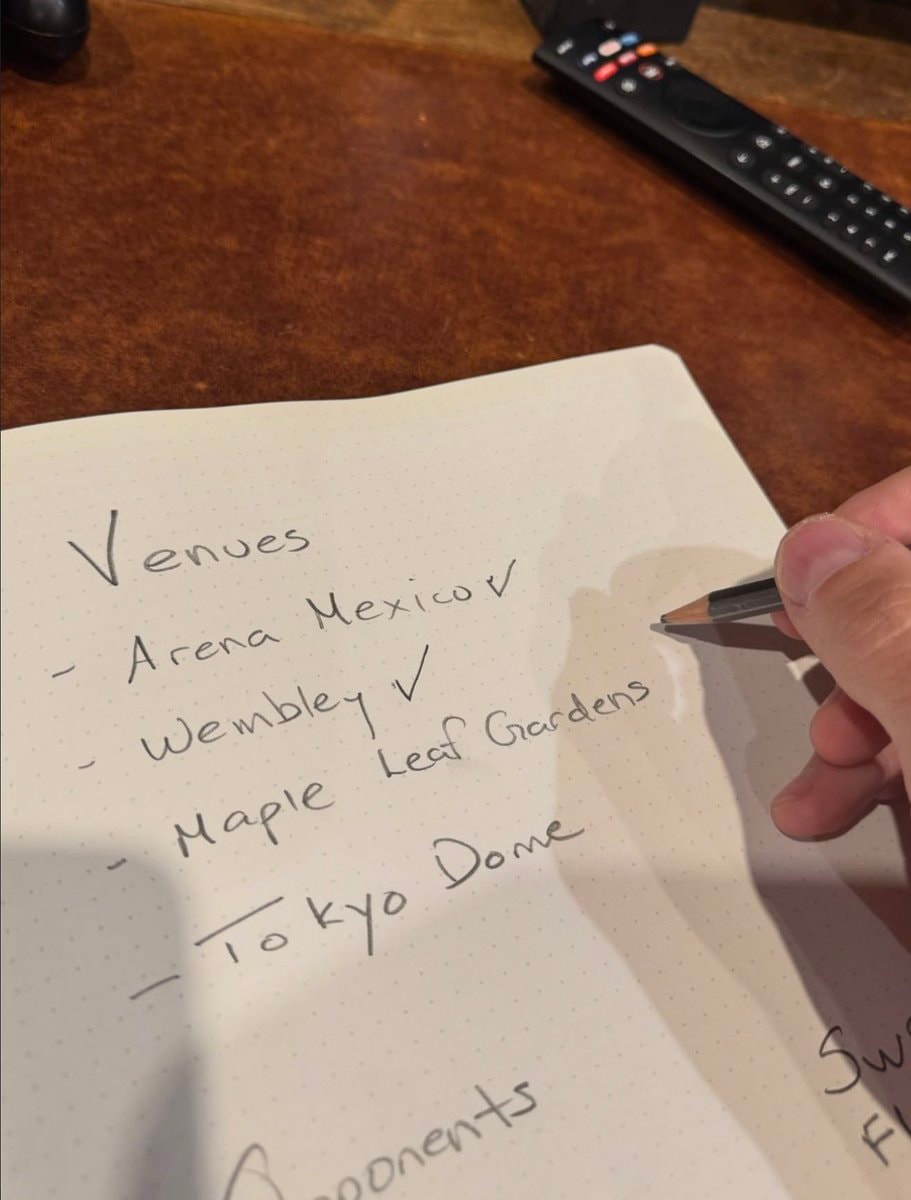 Venues
- Arena Mexico ✓
- Wembley ✓
- Maple Leaf Gardens
- Tokyo Dome